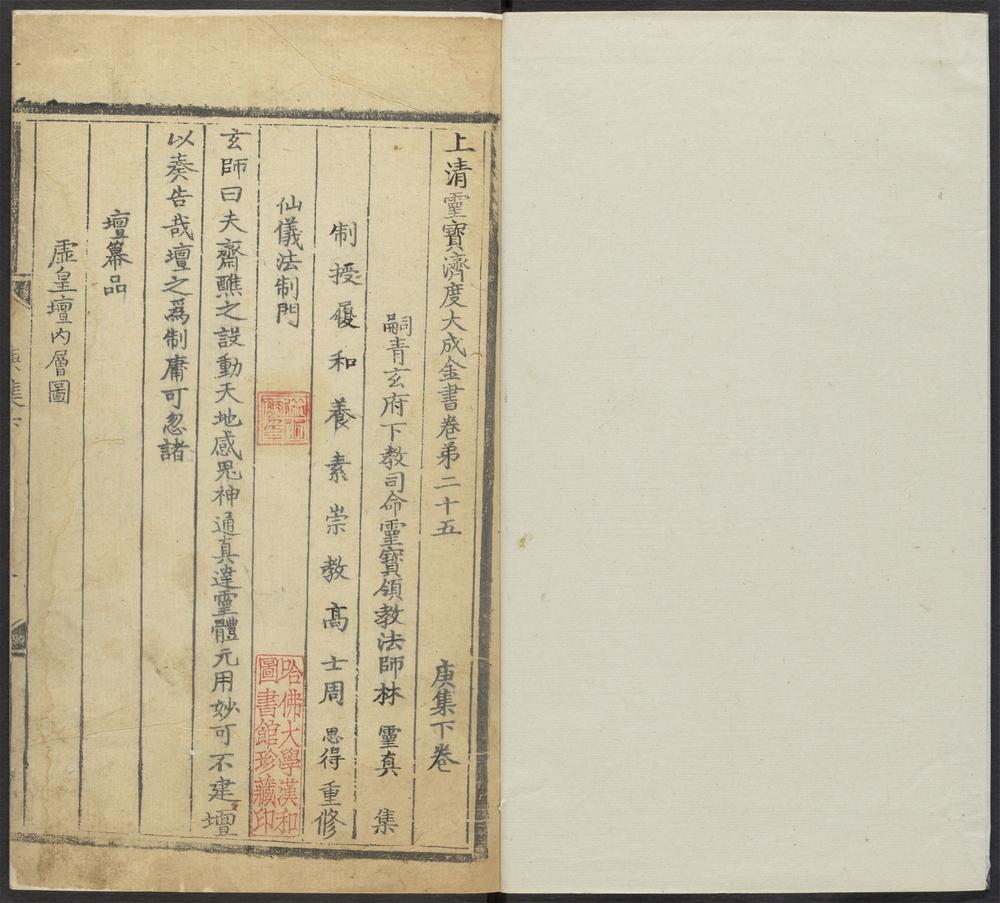 上清靈寶濟度大成金書卷弟二十五　庚集下卷
嗣青玄府下教司命靈寶領教法師林　靈真　集
制授履和養素崇教高士周　思得重修
仙儀法制門
玄師曰夫齋醮之設動天地感鬼神通真達靈體元用妙可不建壇
以奏告哉壇之爲制庸可忽諸
壇幕品
虛皇壇内層圖
哈佛大學漢和
圖書館珍藏印